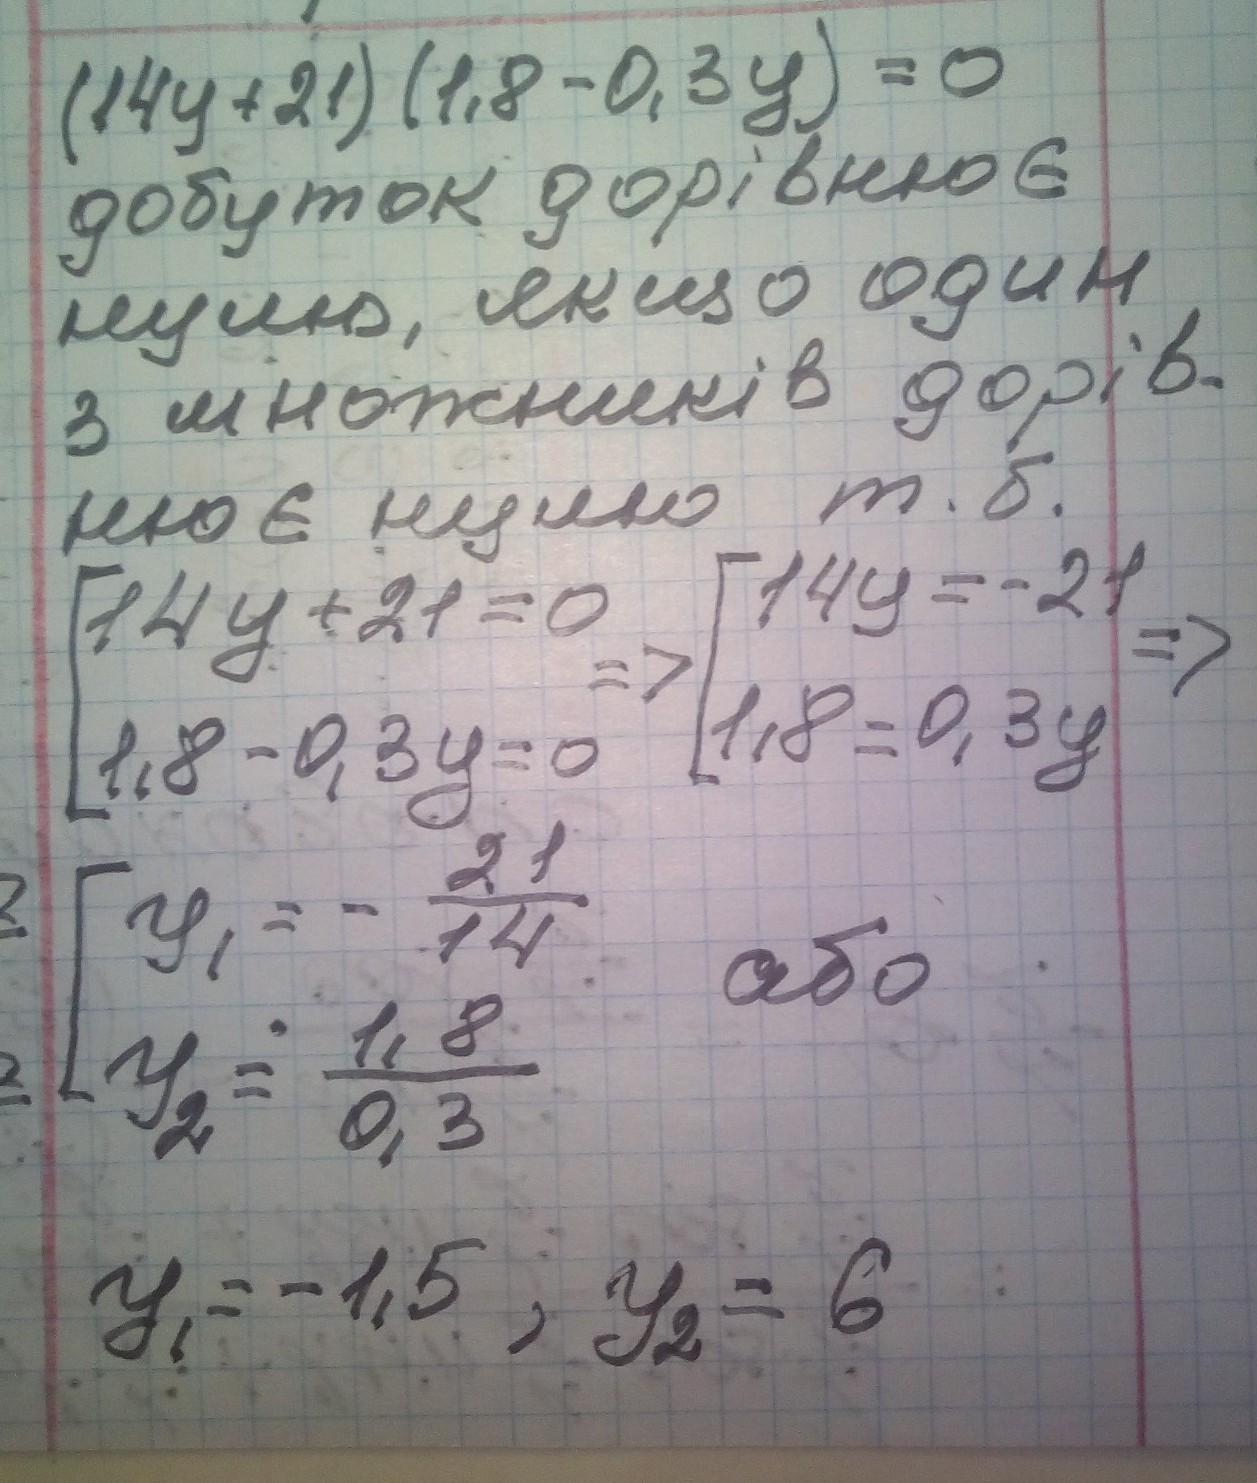 (14y+21)(1,8-0,3y)=0
добуток дорівнює
нулю, якщо один
з множників дорів-
нює нулю т.б.
[14y+21=0 => [14y=-21 =>
[1,8-0,3y=0 [1,8=0,3y
[y₁=-21/14 або
[y₂=1,8/0,3
y₁=-1,5, y₂=6